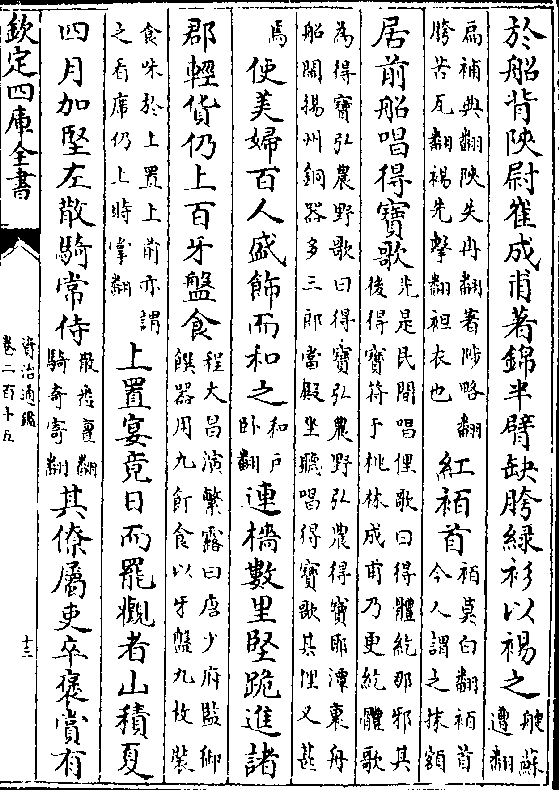 於船背陜尉崔成甫著錦半臂缺胯綠衫以裼之
艘蘇
遭翻
扁補典翻陜失冉翻著陟略翻
胯苦瓦翻裼先擊翻袒衣也
紅袹首
袹莫白翻袹首
今人謂之抹額
居前船唱得寶歌
先是民間唱俚歌曰得體紇那邪其
後得寶符于桃林成甫乃更紇體歌
為得寶弘農野歌曰得寶弘農野弘農得寶耶潭裏舟
船鬧揚州銅器多三郎當殿坐聽唱得寶歌其俚又甚
焉
使美婦百人盛飾而和之
和戶
卧翻
連檣數里堅跪進諸
郡輕貨仍上百牙盤食
程大昌演繁露曰唐少府監御
饌器用九飣食以牙盤九枚裝
食味於上置上前亦謂
之看席仍上時掌翻
上置宴竟日而罷觀者山積夏
四月加堅左散騎常侍
散悉亶翻
騎奇寄翻
其僚屬吏卒褒賞有
欽定四庫全書
資治通鑑
卷二百十五
十三